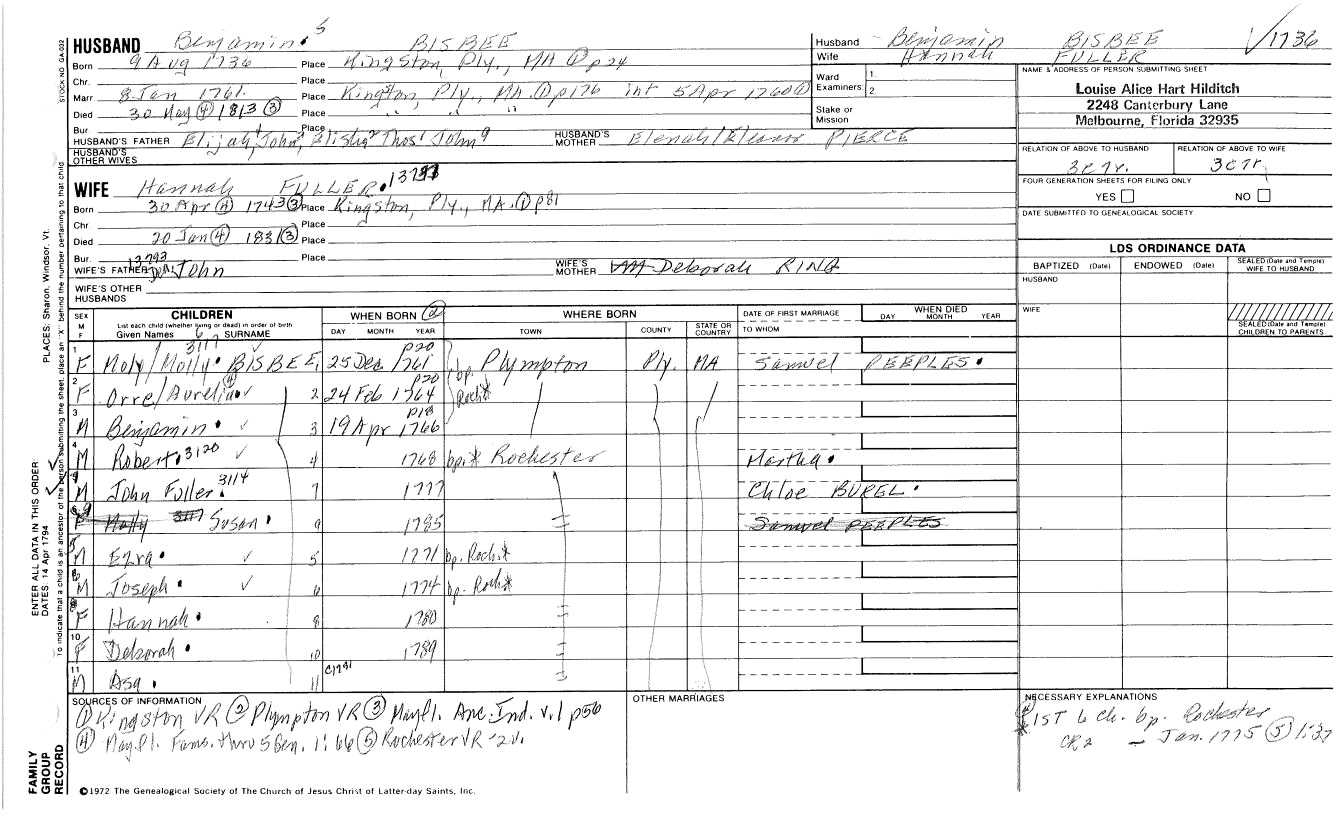 HUSBAND Benjamin 5 BISBEE
Born 9 Aug 1736 Place Kingston, Ply., MA ① p24
Chr. Place
Marr. 8 Jan 1761. Place Kingston, Ply., MA. ① p176 int 5 Apr 1760 ①
Died 30 May ④ 1813 ③ Place " " "
Bur. Place
HUSBAND'S FATHER Elijah⁴, John³, Elisha² Thos¹ John HUSBAND'S MOTHER Elenah/Eleanor PIERCE
HUSBAND'S OTHER WIVES
Husband Benjamin BISBEE √1736
Wife Hannah FULLER
Ward Examiners: 1. 2.
Stake or Mission
NAME & ADDRESS OF PERSON SUBMITTING SHEET
Louise Alice Hart Hilditch
2248 Canterbury Lane
Melbourne, Florida 32935
RELATION OF ABOVE TO HUSBAND RELATION OF ABOVE TO WIFE
3c7r. 3c7r
FOUR GENERATION SHEETS FOR FILING ONLY
YES NO
DATE SUBMITTED TO GENEALOGICAL SOCIETY
WIFE Hannah FULLER.
Born 30 Apr ④ 1743 ③ Place Kingston, Ply., MA. ① p81
Chr. Place
Died 20 Jan ④ 1831 ③ Place
Bur. Place
WIFE'S FATHER 13793 Dea. John WIFE'S MOTHER Deborah RING
WIFE'S OTHER HUSBANDS
LDS ORDINANCE DATA
BAPTIZED (Date) ENDOWED (Date) SEALED (Date and Temple) WIFE TO HUSBAND
HUSBAND
WIFE
SEALED (Date and Temple) CHILDREN TO PARENTS
SEX M F CHILDREN WHEN BORN ② WHERE BORN DATE OF FIRST MARRIAGE WHEN DIED
List each child (whether living or dead) in order of birth
Given Names 6 SURNAME DAY MONTH YEAR TOWN COUNTY STATE OR COUNTRY TO WHOM DAY MONTH YEAR
1 F Moly/Molly. 3117 BISBEE 1 25 Dec 1761 p20 bp. Plympton Ply. MA Samuel PEEPLES.
2 F Orre/Aurelia 2 24 Feb 1764 p20 Roch*
3 M Benjamin 3 19 Apr 1766 p18
4 M Robert. 3120 4 1768 bp.* Rochester Martha.
M John Fuller. 3114 7 1777 Chloe BUREL.
Molly 3117 Susan. 9 1785 Samuel PEEPLES
M Ezra. 5 1771 bp. Roch*
6 M Joseph. 6 1774 bp. Roch*
F Hannah. 8 1780
10 F Deborah. 10 1789
11 M Asa. 11 c1791
SOURCES OF INFORMATION
① Kingston VR ② Plympton VR ③ Mayfl. Anc. Ind. v.1 p56
④ Mayfl. Fams. thru 5 Gen. 1:66 ⑤ Rochester VR - 2v.
OTHER MARRIAGES
NECESSARY EXPLANATIONS
* 1ST 6 Ch. bp. Rochester
CR2 - Jan. 1775 ⑤ 1:37
©1972 The Genealogical Society of The Church of Jesus Christ of Latter-day Saints, Inc.
FAMILY GROUP RECORD
ENTER ALL DATA IN THIS ORDER
DATES: 14 Apr 1794
PLACES: Sharon, Windsor, Vt.
To indicate that a child is an ancestor of the person submitting the sheet, place an "X" behind the number pertaining to that child.
STOCK NO. GA-002